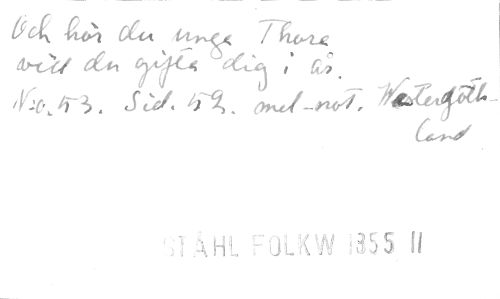 Och hör du unga Thora
vill du gifta dig i år.
N:o. 53. Sid. 52. mel-not. Westergöth-
land
STÅHL FOLKW 1855 II